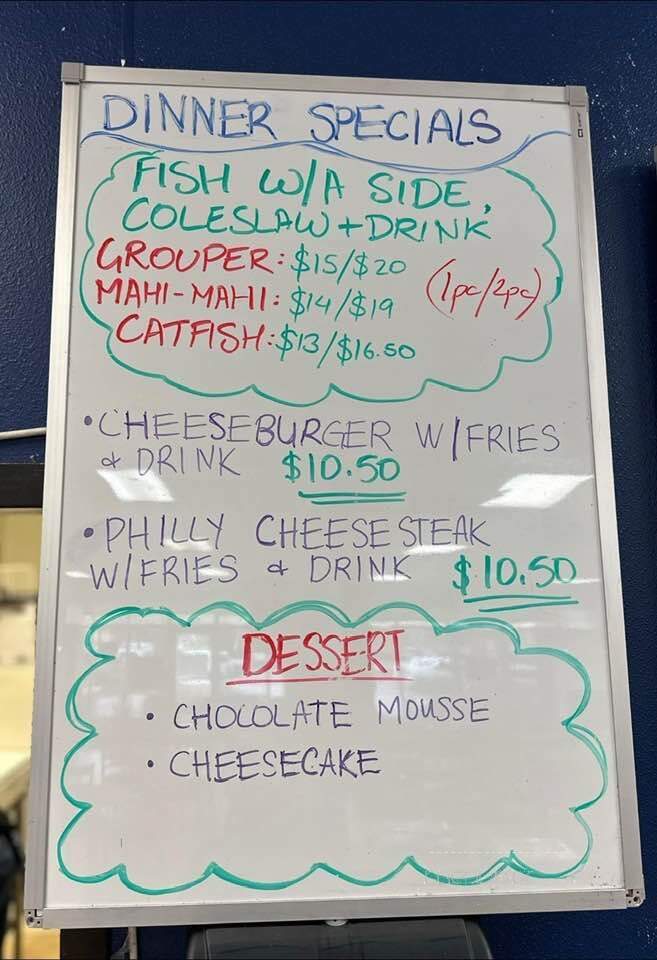 DINNER SPECIALS
FISH W/A SIDE,
COLESLAW + DRINK
GROUPER: $15/$20
MAHI-MAHI: $14/$19 (1pc/2pc)
CATFISH: $13/$16.50
• CHEESEBURGER W/FRIES
& DRINK $10.50
• PHILLY CHEESE STEAK
W/FRIES & DRINK $10.50
DESSERT
• CHOCOLATE MOUSSE
• CHEESECAKE